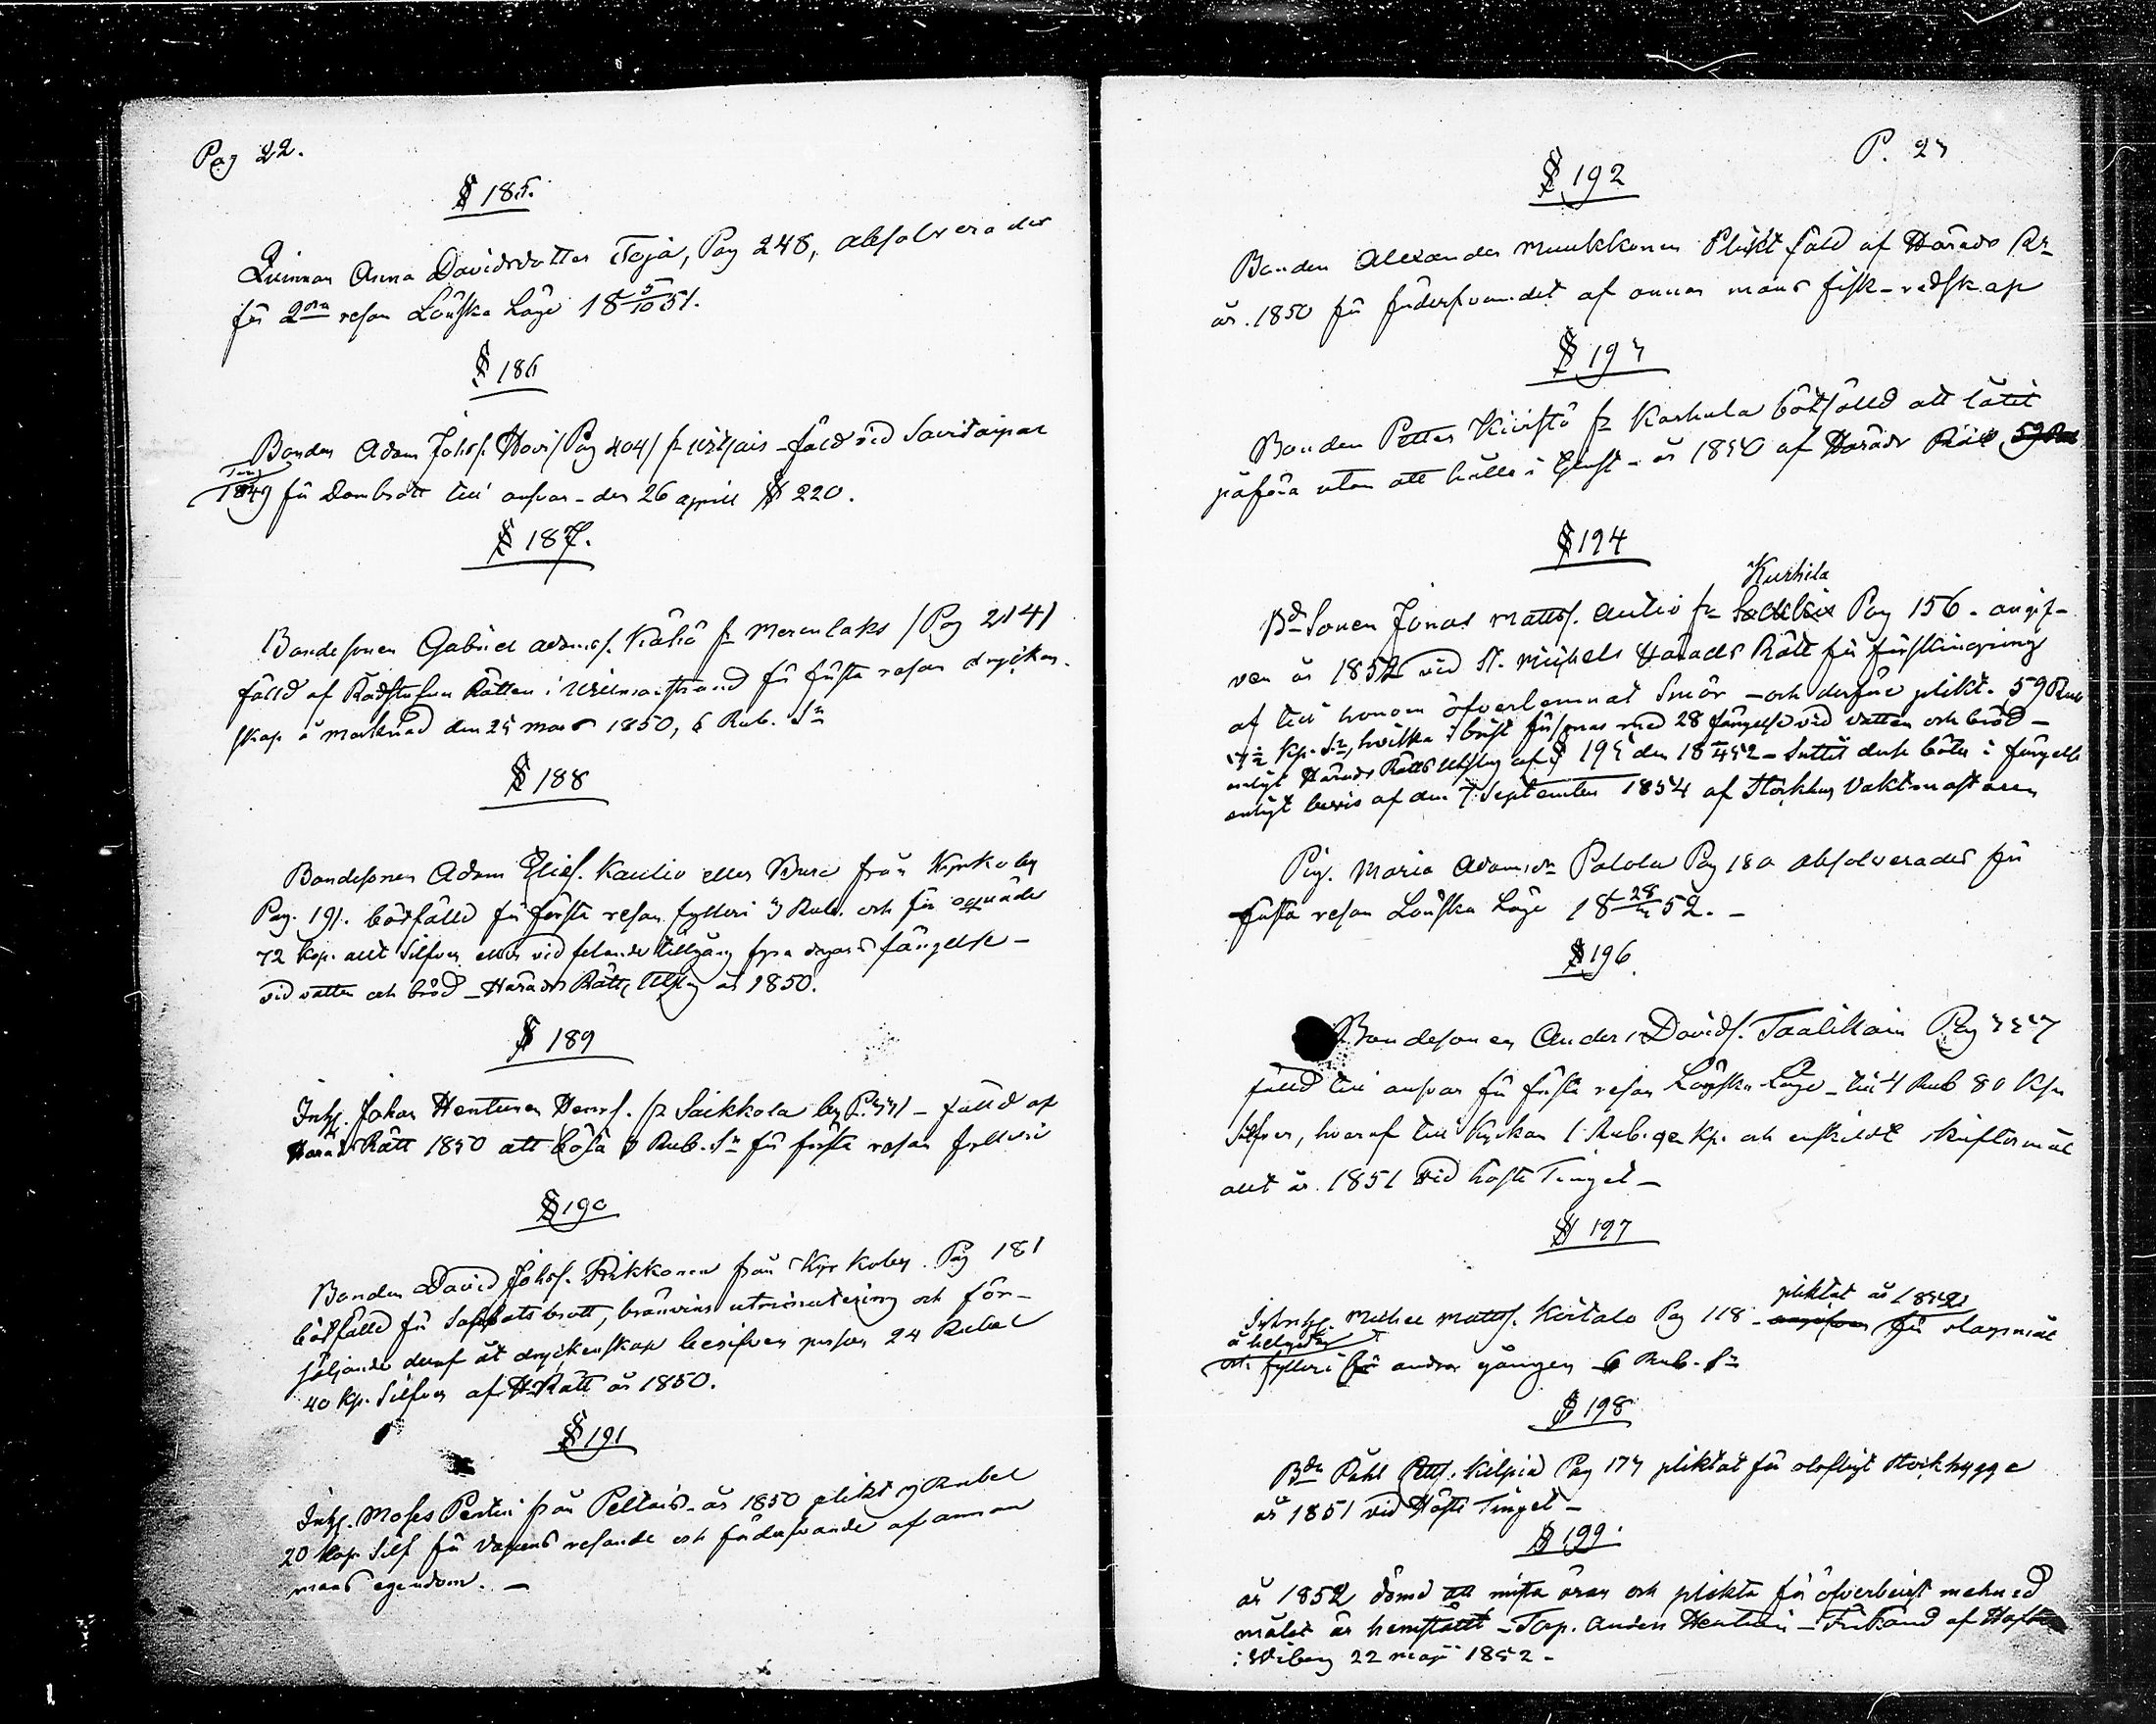 Pag 22.
§ 185.
Quinnan Anna Davidsdotter Toja, Pag 248, absolverades
för 2dra resan Lönska Läge 18 5/10 51.
§ 186
Bonden Adam Johsf. Hovi / Pag 404 / fr. fäld vid Savitaipal
Ting
1849 för Dombrott till ansvar - den 26 april § 220.
§ 187.
Bondesonen Gabriel Adamsf. Kähö fr Merenlaks / Pag 214 /
fälld af Rådstufvu Rätten i Willmanstrand för första resan drycken-
skap å marknad den 25 mars 1850, 6 Rub. Sr
§ 188
Bondesonen Adam Eliesf. Kaulio eller från Kyrkoby
Pag. 191. bötfälld för första resan fylleri 3 Rub. och för oqväde
72 kop. allt Silfver eller vid felande tillgång fyra dagars fängelse -
vid vatten och bröd - Härads Rätts Utslag år 1850.
§ 189
Inhs. Johan Hentunen Henrsf. fr Saikkola by P. 331 - fälld af
Härads Rätt 1850 att böta 3 Rub. Sr för första resan fylleri
§ 190
Bonden David Johsf. Pikkonen från Kyrkoby. Pag 181
bötfälld för Sabbatsbrott, brännvins utminutering och för-
säljande deraf åt dryckenskap begifven person 24 Rubel
40 kp. Silfver af H. Rätt år 1850.
§ 191
Inhs. Moses Pertti från Peltois - år 1850 plikt 7 Rubel
20 kop. Silf för resande och förderfvande af annan
mans egendom. -
P. 23
§ 192
Bonden Alexander Muukkonen Plikt fäld af Härads Rr
år. 1850 för förderfvandet af annan mans fisk-redskap
§ 193
Bonden Petter Kiiristö fr Karhula bötfälld att låtit
påföra utan att hålla i Gäst - år 1850 af Härads Rätt
§ 194
Kurhila
Bd Sonen Jonas Mattsf. Autio fr Pag 156 - angif-
ven år 1852 vid St. Michels Härads Rätt för förskingring
af till honom öfverlemnat Smör - och derföre plikt. 59 Rub
kp. Sr, hvilka i brist försonas med 28 fängelse vid vatten och bröd -
enligt Härads Rätts Utslag af § 195 den 18 52 - Suttit dessa böter i fängelse
enligt bevis af den 7 September 1854 af Stockhus Vaktmästaren
Pig. Maria Adamsdr Palola Pag 180 absolverades för
första resan Lönska Läge 18 28 52. -
§ 196
Bondesonen Anders Davidsf. Taalikain Pag
fälld till ansvar för första resan Lönska Läge - till 4 Rub 80 Kp
Silfver, hvaraf till Kyrkan 1 Rub. 92 Kp. och enskildt skriftermål
allt år. 1851 vid höste Tinget -
§ 197
pliktat år 1852
Inhs. Michel Mattsf. Koitalo Pag 118 - angifven för slagsmål
å helgedag
och fylleri för andra gången 6 Rub. Sr
§ 198
Bdn Påhl Pettsf. Kilpiä Pag 173 pliktat för olofligt storkhygge
år 1851 vid Höste Tinget -
§ 199.
år 1852 dömd att mista äran och plikta för öfverbevist mehned
målet är hemstäldt - Torp. Anders Hentinen - Frikänd af Hofr
i Wiborg 22 maji 1852 -